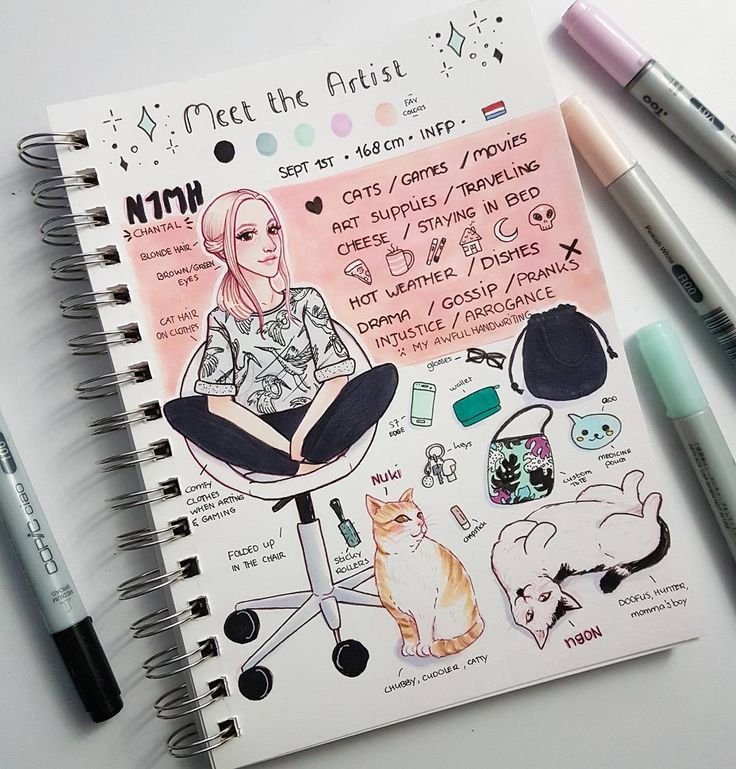 Meet the Artist
FAV
COLORS
SEPT 1ST • 168cm • INFP •
N1MH
CHANTAL
BLONDE HAIR
BROWN/GREEN
EYES
CAT HAIR
ON CLOTHES
CATS / GAMES / MOVIES
ART SUPPLIES / TRAVELING
CHEESE / STAYING IN BED
HOT WEATHER / DISHES
DRAMA / GOSSIP / PRANKS
INJUSTICE / ARROGANCE
MY AWFUL HANDWRITING
glasses
wallet
S7
EDGE
keys
QOO
MEDICINE
POUCH
CUSTOM
TOTE
COMFY
CLOTHES
WHEN ARTING
& GAMING
FOLDED UP
IN THE CHAIR
STICKY
ROLLERS
NUKI
chapstick
CHUBBY, CUDDLER, CATTY
NOBU
DOOFUS, HUNTER,
momma's boy
COPIC ciao
MEDIUM
BROAD
Too
Pinkish White
R00